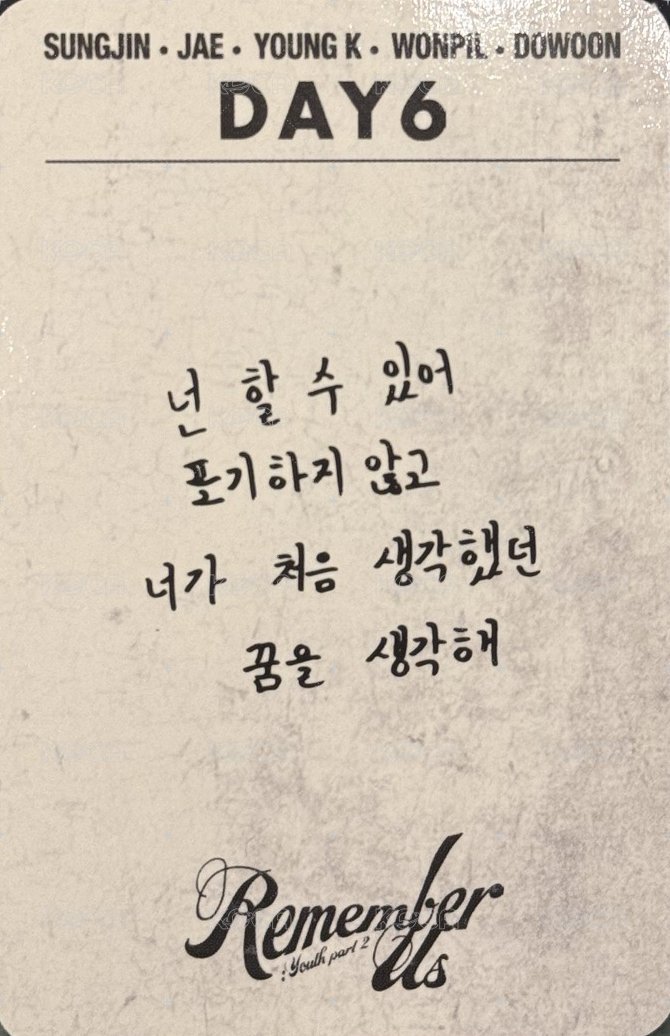 SUNGJIN • JAE • YOUNG K • WONPIL • DOWOON
DAY6
넌 할 수 있어
포기하지 않고
너가 처음 생각했던
꿈을 생각해
Remember
Us
: Youth part 2